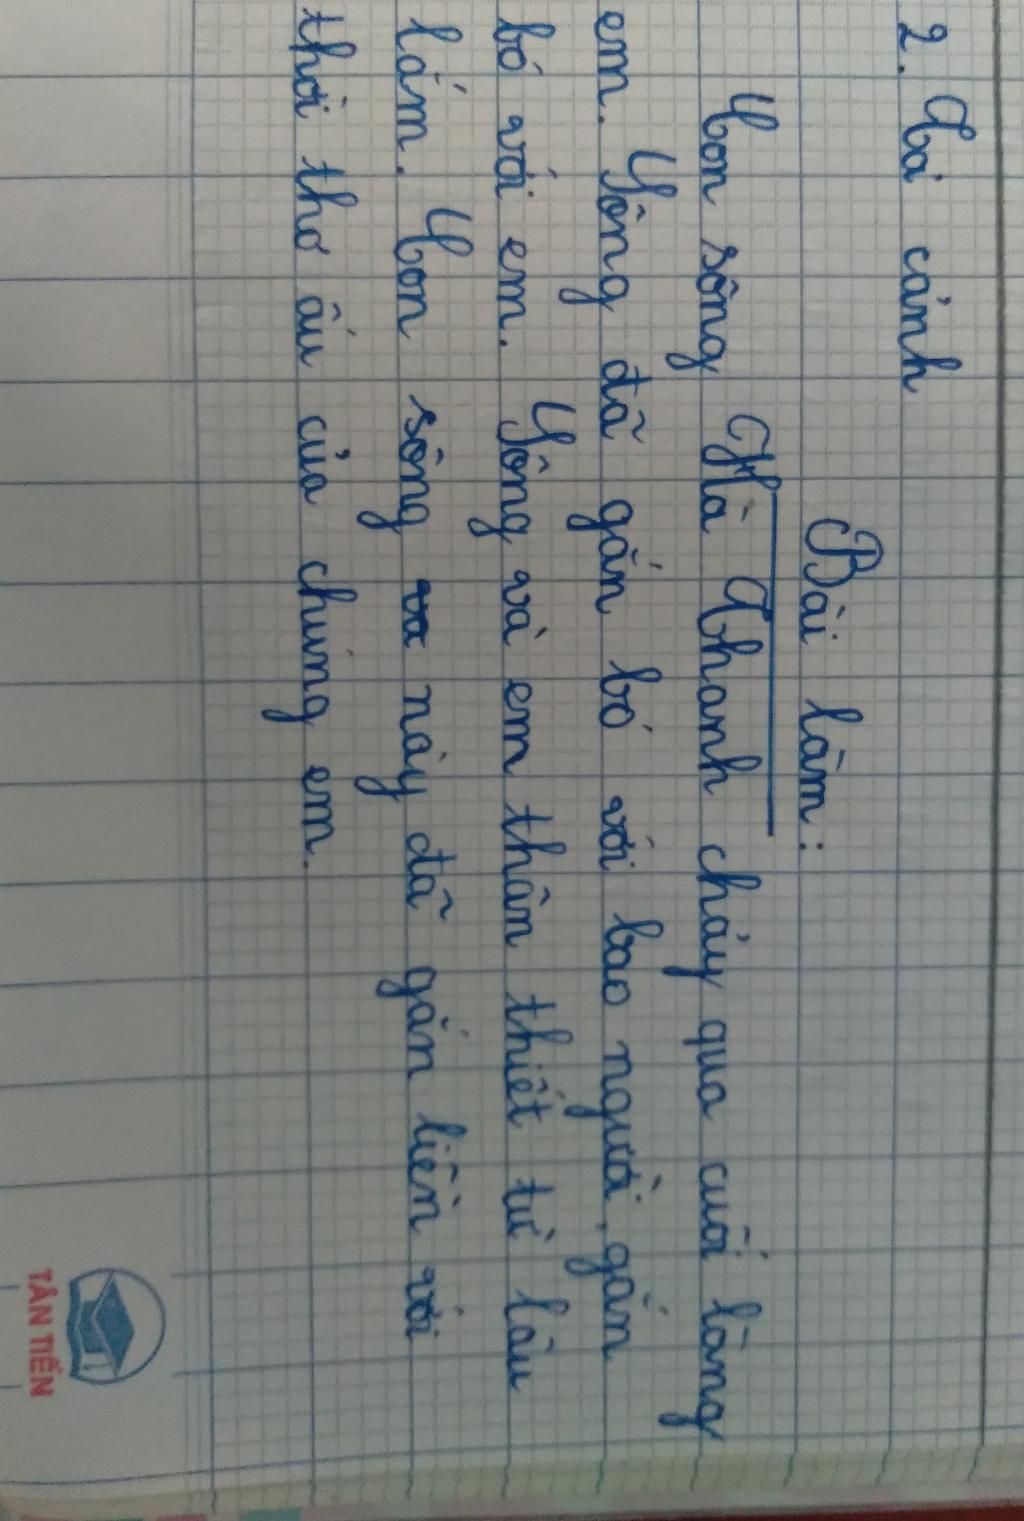 2. Tả cảnh
Bài làm:
Con sông Hà Thanh chảy qua cuối làng
em. Sông đã gắn bó với bao người, gắn
bó với em. Sông và em thân thiết từ lâu
lắm. Con sông và này đã gắn liền với
thời thơ ấu của chúng em.
TÂN TIẾN